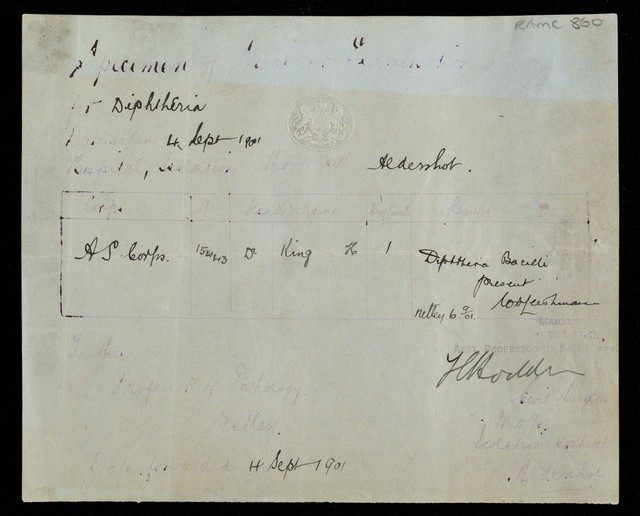 RAMC 800
Specimen of for Examination
for Diphtheria
Date taken 4 Sept 1901
Hospital, Isolation Aldershot.
Corps Rank & name Result
A S Corps. 15443 Dr King H 1 Diphtheria Bacilli
present
WBLeishman
Netley 6.9/01.
MAJOR
ASST. PROFESSOR OF
To the
Professor of Pathology
Netley
Hodder
Civil Surgeon
M.O. i/c
Isolation Hospital
Aldershot
Date forwarded 4 Sept 1901